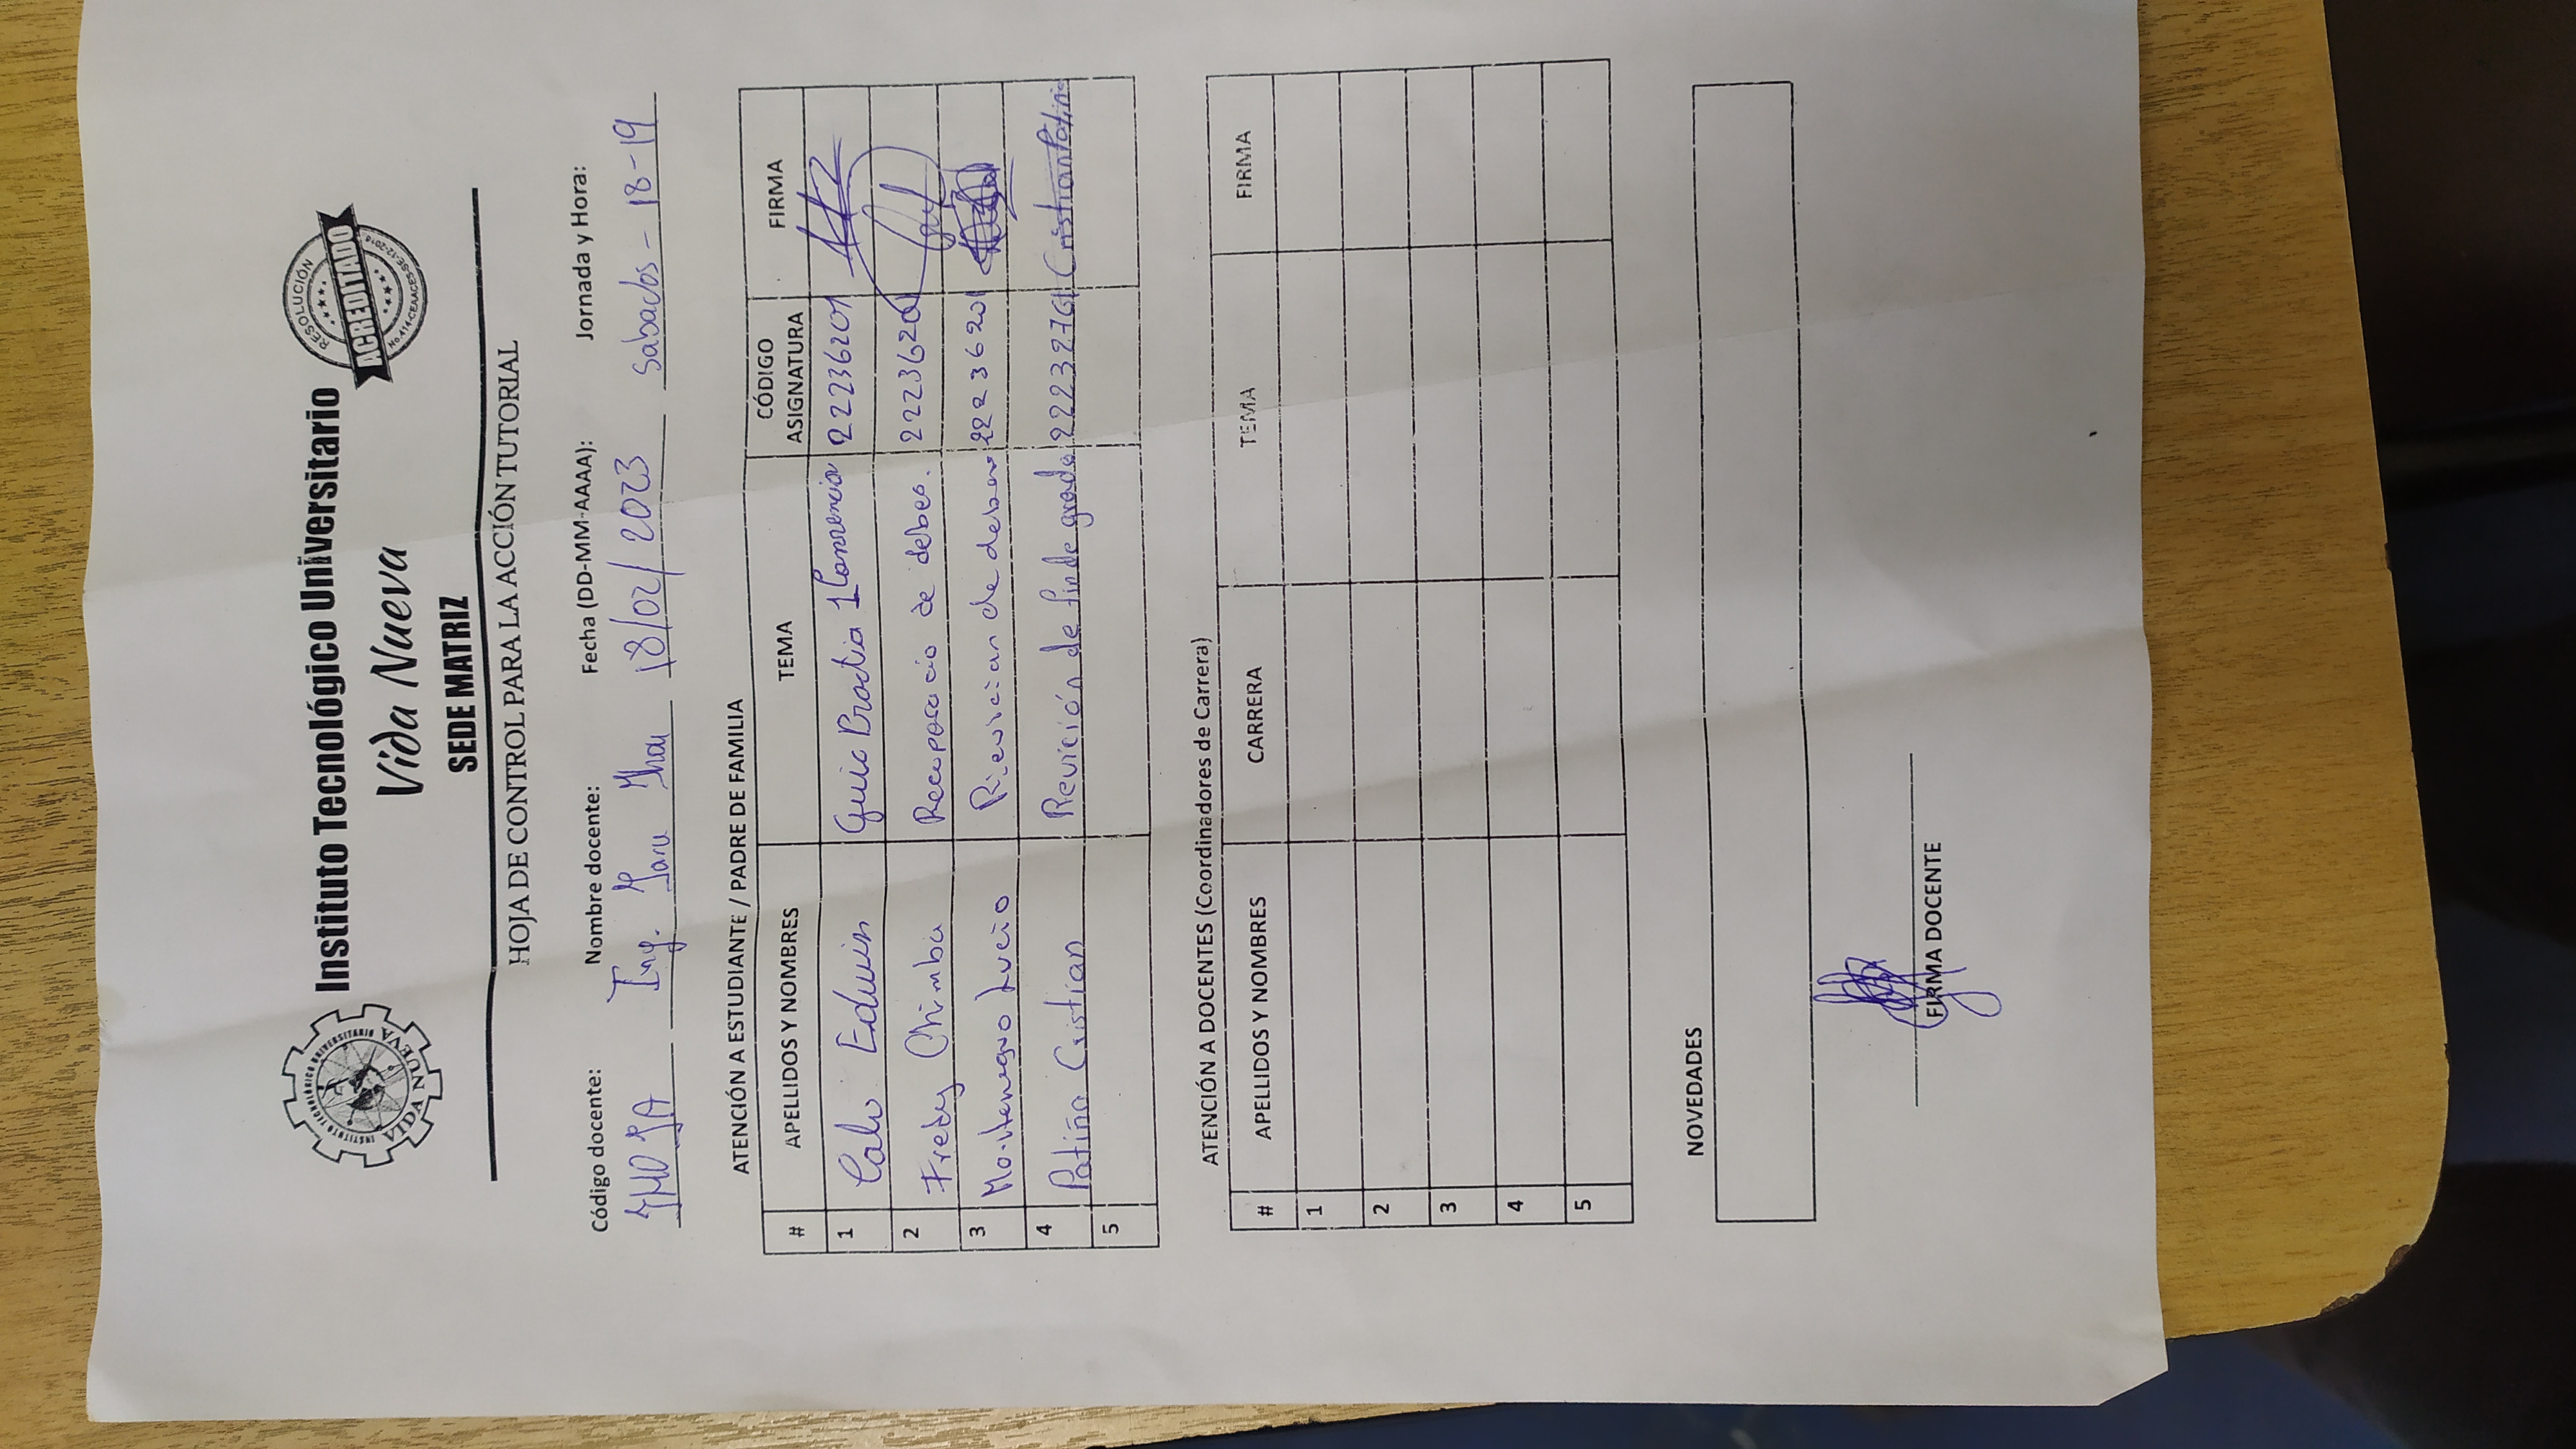 INSTITUTO TECNOLÓGICO UNIVERSITARIO
VIDA NUEVA
Instituto Tecnológico Universitario
Vida Nueva
SEDE MATRIZ
RESOLUCIÓN
ACREDITADO
No.414-CEAACES-SE-12-2018
HOJA DE CONTROL PARA LA ACCIÓN TUTORIAL
Código docente: Nombre docente: Fecha (DD-MM-AAAA): Jornada y Hora:
Ing. 18/02/2023 Sabados - 18-19
ATENCIÓN A ESTUDIANTE / PADRE DE FAMILIA
# APELLIDOS Y NOMBRES TEMA CÓDIGO ASIGNATURA FIRMA
1 Edwin 1 22236201
2 Fredy Chimba de 22236201
3 Montenegro Lucio de 22236201
4 Patiño Cristian Revición de fin de grado 22232761 Cristian Patiño
5
ATENCIÓN A DOCENTES (Coordinadores de Carrera)
# APELLIDOS Y NOMBRES CARRERA TEMA FIRMA
1
2
3
4
5
NOVEDADES
FIRMA DOCENTE